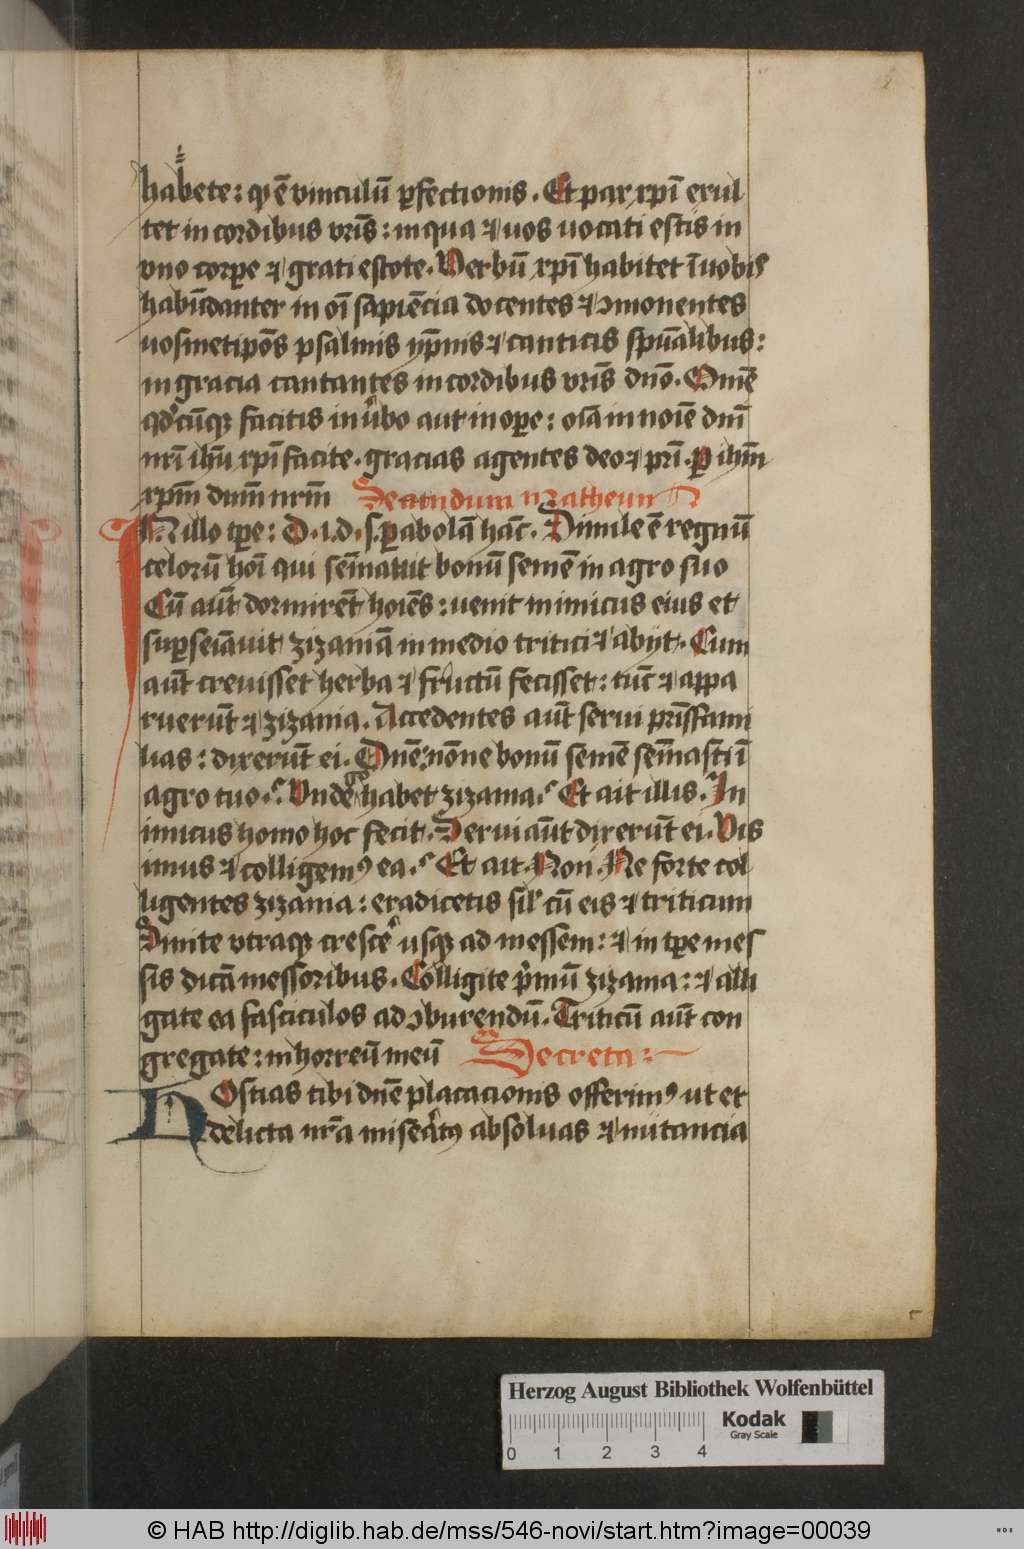 habete: qđ ē vinculū ꝑfectionis. Et pax xpī exul
tet in cordibus vrīs: in qua ⁊ uos uocati estis in
vno corꝑe ⁊ grati estote. Verbū xpī habitet ī uobis
habūdanter in oī sapiēcia docentes ⁊ ꝯmonentes
uosmetipōs psalmis ypnīs ⁊ canticis spūalibus:
in gracia cantantes in cordibus vrīs dnō. Omē
qđcūqꝫ facitis in ūbo aut in oꝑe: oīa in noīe dnī
nrī ihū xpī facite. gracias agentes deo ⁊ prī. ꝑ ihm̄
xpm̄ dnm̄ nrm̄ Secundum Matheum
IN illo tꝑe: D. i. d. s. ꝑabolā hāc. Simile ē regnū
celorū hoī qui semīauit bonū semē in agro suo
Cū aūt dormirēt hoīes: uenit inimicus eius et
suꝑseīauit zizaniā in medio tritici ⁊ abijt. Cum
aūt creuisset herba ⁊ fructū fecisset: tūc ⁊ appa
ruerūt ⁊ zizania. Accedentes aūt serui prīsfami
lias: dixerūt ei. Dnē: nōne bonū semē semīasti ī
agro tuo. Vnde gͦ habet zizania. Et ait illis. In
imicus homo hoc fecit. Serui aūt dixerūt ei. Vis
imus ⁊ colligemꝰ ea. Et ait. Non. Ne forte col
ligentes zizania: eradicetis sil' cū eis ⁊ triticum
Sinite vtraqꝫ crescē usqꝫ ad messem: ⁊ in tꝑe mes
sis dicā messoribus. Colligite pͥmū zizania: ⁊ alli
gate ea fasciculos ad ꝯburendū. Triticū aūt con
gregate: in horreū meū Secreta:
HOstias tibi dnē placacionis offerimꝰ ut et
delicta nrā miseratꝰ absoluas ⁊ nutancia
Herzog August Bibliothek Wolfenbüttel
Kodak
Gray Scale
0 1 2 3 4
© HAB http://diglib.hab.de/mss/546-novi/start.htm?image=00039